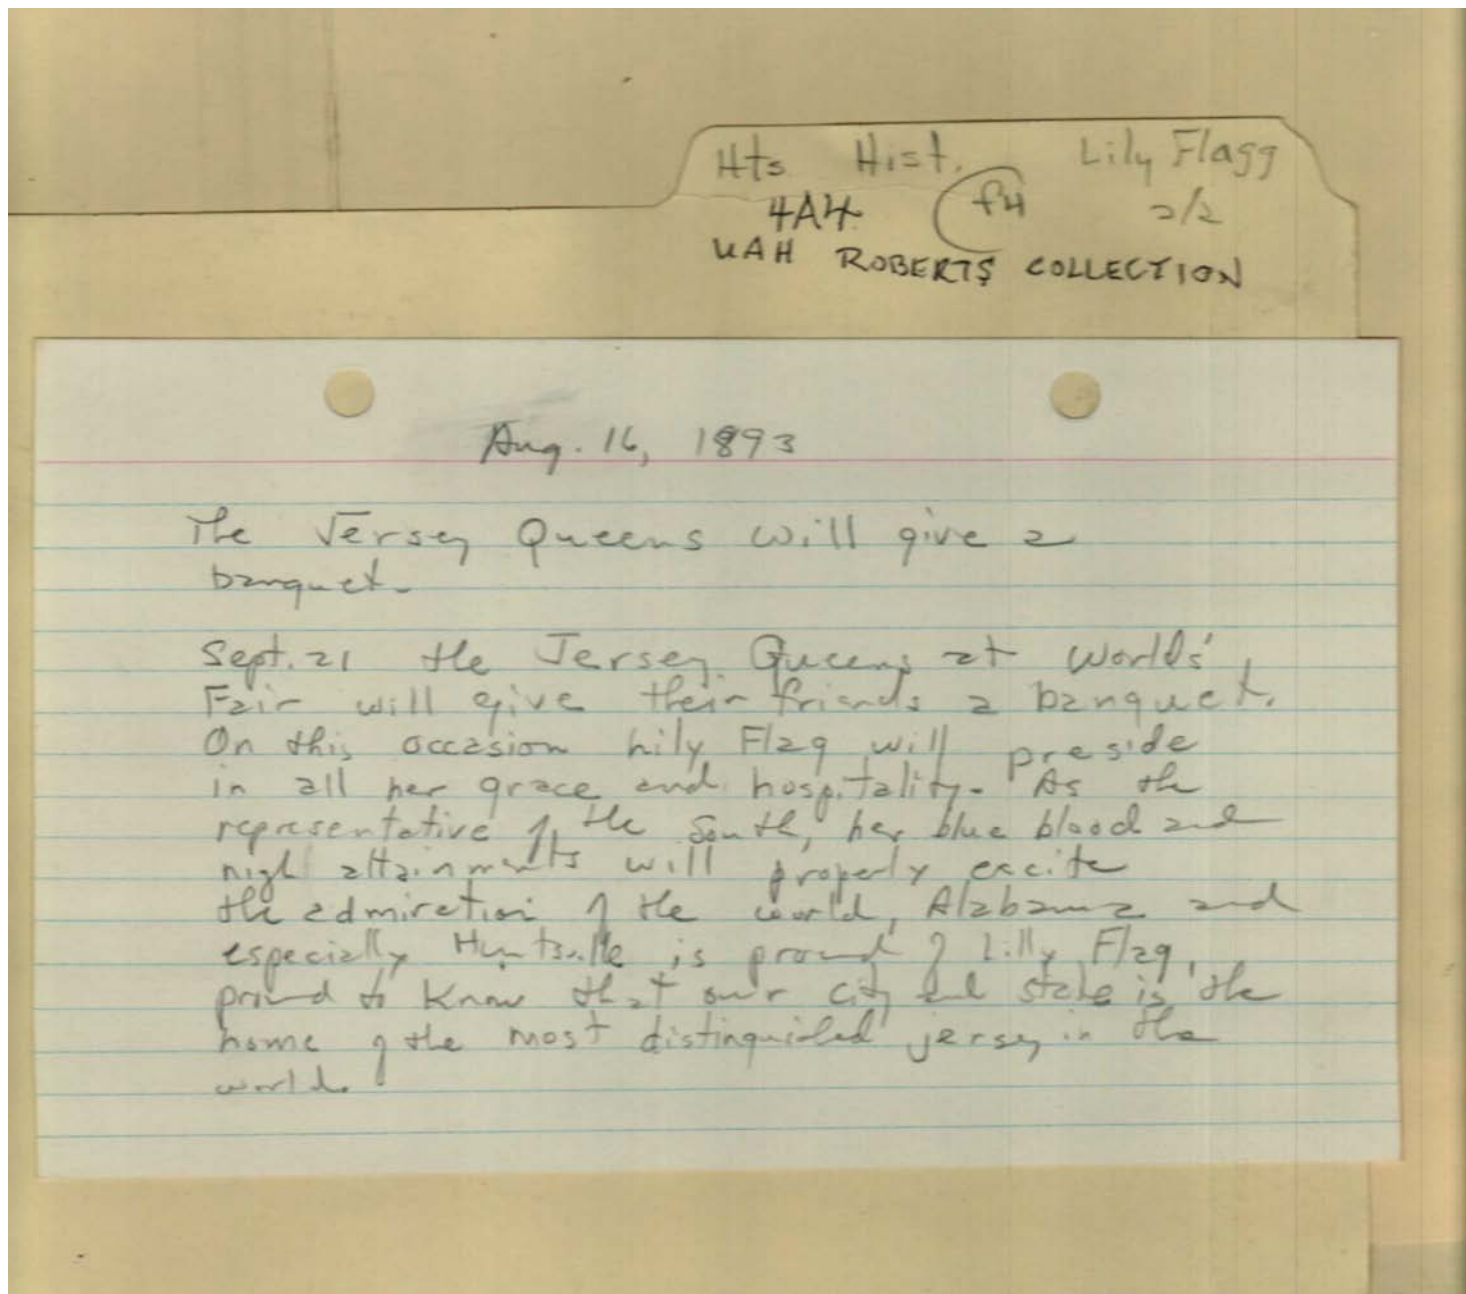 Hts Hist. Lily Flagg
4A4 f4 2/2
UAH ROBERTS COLLECTION
Aug. 16, 1893
The Jersey Queens will give a
banquet.
Sept. 21 the Jersey Queens at Worlds'
Fair will give their friends a banquet.
On this occasion Lily Flag will preside
in all her grace and hospitality. As the
representative of the South, her blue blood and
high attainments will properly excite
the admiration of the world, Alabama and
especially Huntsville is proud of Lilly Flag,
proud to know that our city and state is the
home of the most distinguished jersey in the
world.